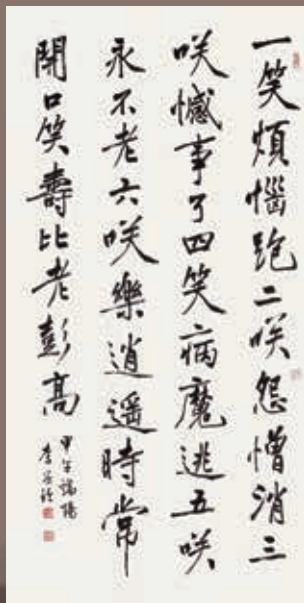 一笑煩惱跑二咲怨憎消三
咲憾事了四笑病魔逃五咲
永不老六咲樂逍遥時常
開口笑壽比老彭高
甲午端陽
李